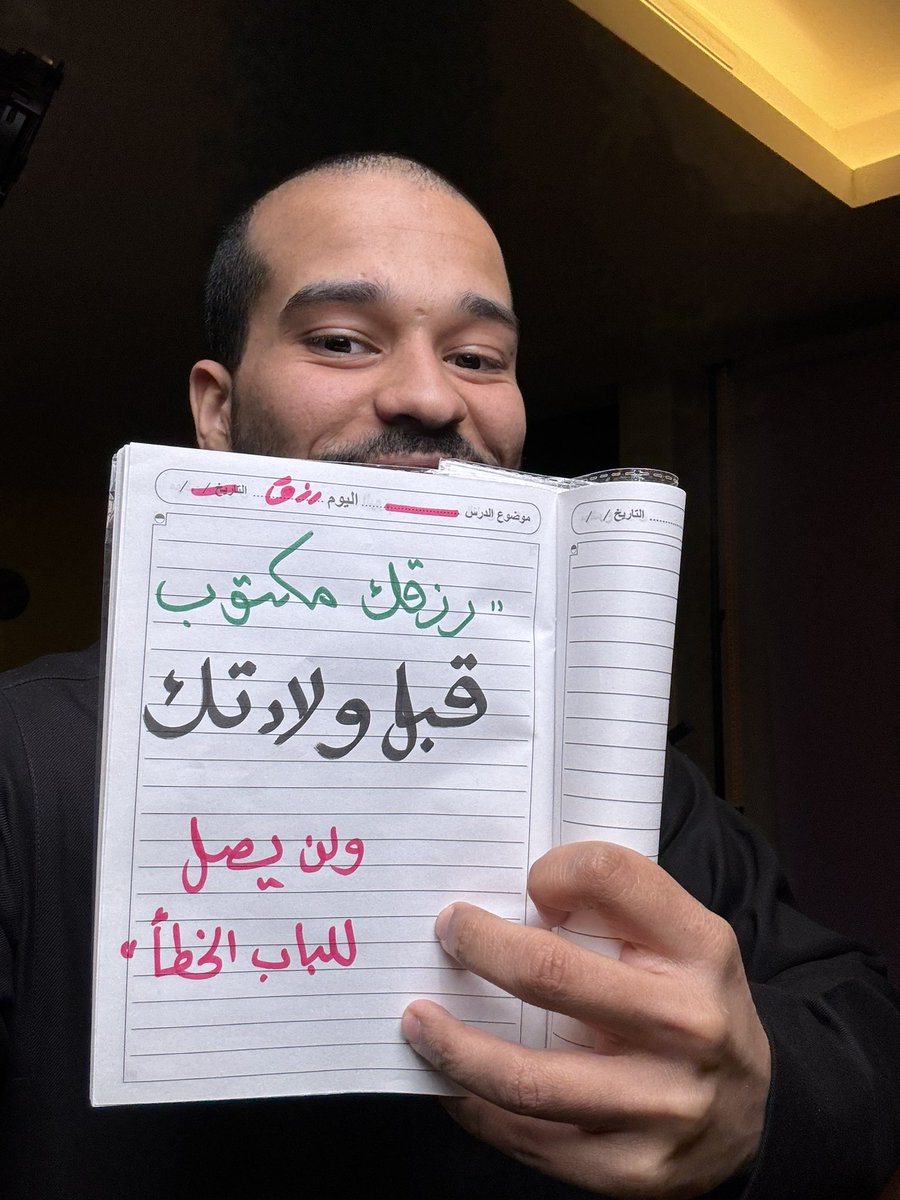 موضوع الدرس ........ اليوم رزق التاريخ / /
التاريخ / /
"رزقك مكتوب
قبل ولادتك
ولن يصل
للباب الخطأ"